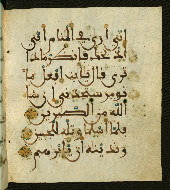 إني أرى في المنام أني
أذبحك فانظر ماذا
ترى قال يأبت افعل ما
تؤمر ستجدني إن شا
الله من الصبرين
فلما أسلما وتله للجبين
وندينه أن يإبرهيم